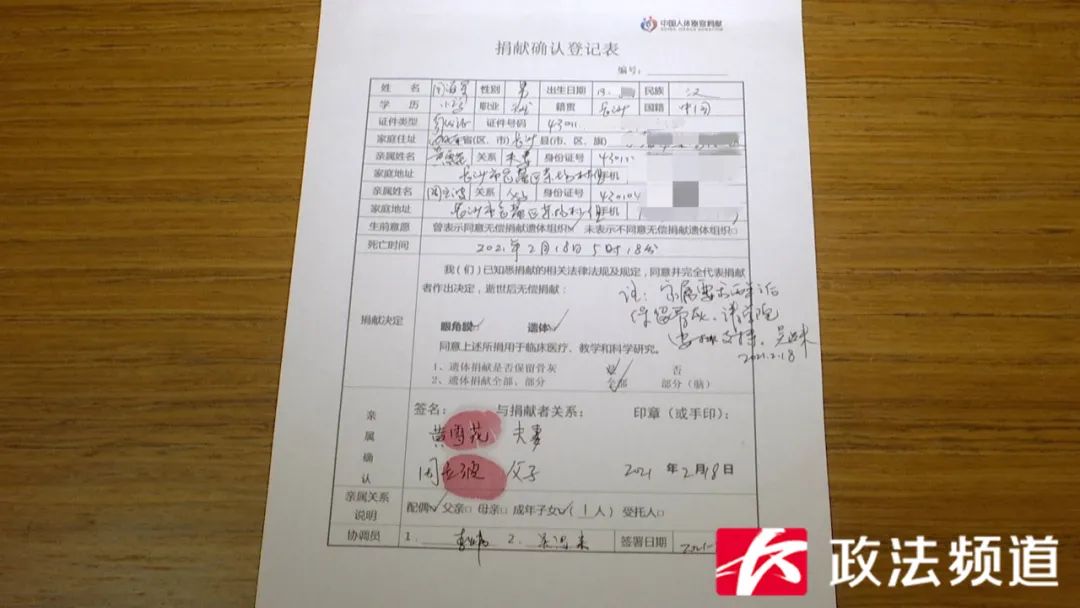 中国人体器官捐献
CHINA ORGAN DONATION
捐献确认登记表
编号:
姓 名 性别 男 出生日期 19 民族 汉
学 历 职业 籍贯 长沙 国籍 中国
证件类型 身份证 证件号码 43011
家庭住址 省(区、市)长沙 县(市、区、旗)
亲属姓名 黄雪花 关系 夫妻 身份证号 43011
家庭地址 长沙市芙蓉区东 手机
亲属姓名 关系 父子 身份证号 430104
家庭地址 长沙市芙蓉区东 手机
生前意愿 曾表示同意无偿捐献遗体组织☑ 未表示不同意无偿捐献遗体组织□
死亡时间 2021年2月18日5时18分
我(们)已知悉捐献的相关法律法规及规定,同意并完全代表捐献
者作出决定,逝世后无偿捐献:
注:家属要求
保留骨灰、请学院
支持、
2021.2.18
捐献决定
眼角膜✓ 遗体✓
同意上述所捐用于临床医疗、教学和科学研究。
1、遗体捐献是否保留骨灰 是 否
2、遗体捐献全部、部分 全部 部分(脑)
亲属确认
签名: 与捐献者关系: 印章(或手印):
黄雪花 夫妻
父子 2021 年 2 月 18 日
亲属关系说明 配偶☑ 父亲□ 母亲□ 成年子女☑(1人) 受托人□
协调员 1. 2. 签署日期 2021
政法频道